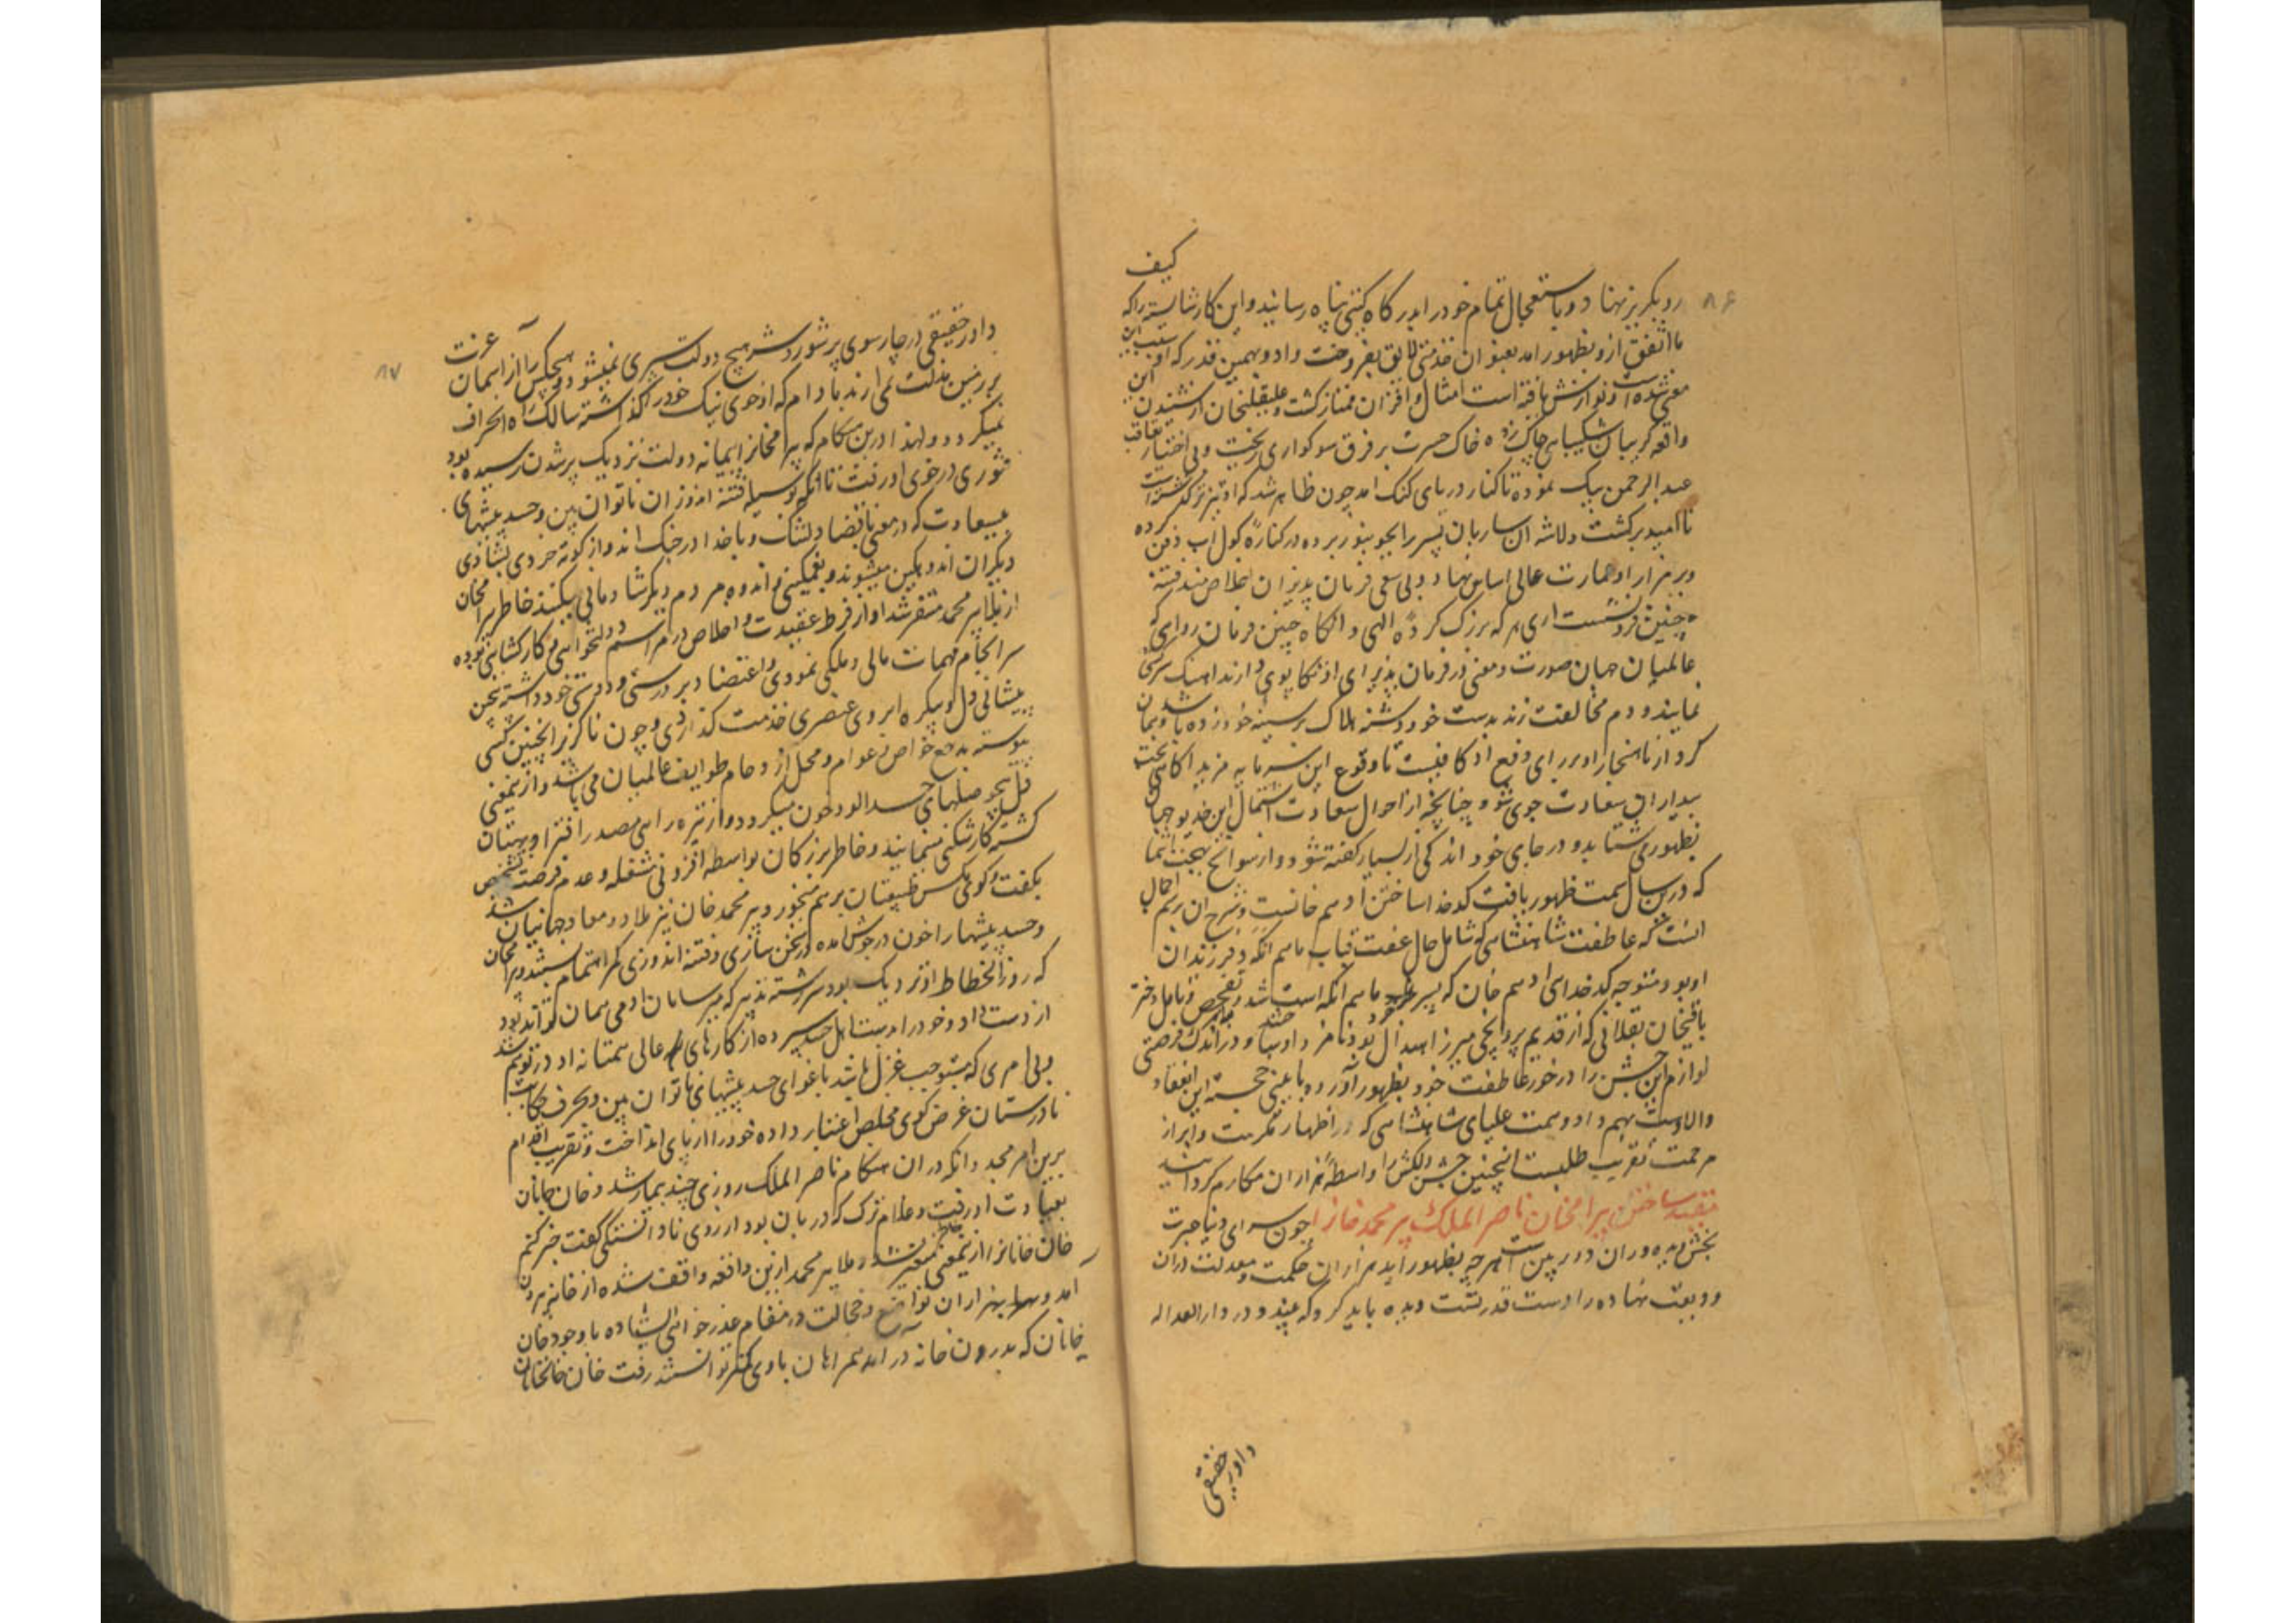 کیف
۸۶
رو بگریز نهاد و باستعجال تمام خود را بدرگاه گیتی پناه رسانید و این کار شایسته را که
ما اتفق ازو بظهور امد بعنوان خدمتی لایق بفروخت و او بهمین قدر که او سبب این
معنی شده است نوازش یافته است امثال و اقران ممتاز گشت و علیقلیخان از شنیدن این
واقعه گریبان شکیبایی چاک زده خاک حسرت بر فرق سوکواری ریخت و بی اختیار تعاقب
عبدالرحمن بیک نموده تا کنار دریای گنگ امد چون ظاهر شد که او تیزتر گذشته است
ناامید برگشت و لاشه ان ساربان پسر را بجونپور برده در کناره کول اب دفن کرده
و بر مزار او عمارت عالی اساس نهاد و بی سعی فرمان پذیران اخلاص مند فتنه
چنین فرو نشست اری هر که بزرگ کرده الهی و انگاه چنین فرمان روای که
عالمیان جهان صورت و معنی در فرمان پذیرای او تکاپوی دارند اهنگ سرکشی
نمایند و دم مخالفت زند بدست خود دشنه هلاک بر سینه خود زده باشد و همان
کرد از ناهنجار او برای دفع او کافیست تا وقوع این سرمایه مزید اگاهی بخت
بیداران سعادت جوی شود چنانچه از احوال سعادت اشتمال این خدیو جهان
بظهور می شتابد و در جای خود اندکی از بسیار گفته شود و از سوانح بهجت انتما
که درین سال سمت ظهور یافت کدخدا ساختن ادهم خانست و شرح ان برسم اجمال
انست که عاطفت شاهنشاهی که شامل حال عفت قباب ماهم انگه و فرزندان
او بود متوجه کدخدای ادهم خان که پسر خورد ماهم انگه است شد و تفحص و تامل دختر
باقیخان بقلانی که از قدیم پروانچی میرزا هندال بود نامزد او ساختند و در اندک فرصتی
لوازم این جشن را در خور عاطفت خود بظهور آورده بایینی خجسته این انعقاد
والا دست بهم داد و همت علیای شاهنشاهی که در اظهار مکرمت و ابراز
مرحمت تقریب طلبست اینچنین جشن دلکش را واسطه هزاران مکارم گردانید
مقید ساختن بیرامخان ناصرالملک پیر محمد خانرا چون سرای دنیا عبرت
بخش دیده وران دوربین است هرچه بظهور اید هزاران حکمت و معدلت در ان
ودیعت نهاده را دست قدرتست دیده باید کرد که بیند و در دارالعداله
داور حقیقی
۸۷
داور حقیقی در چارسوی پر شورش هیچ دولت سپری نمیشود و هیچکس را از اسمان عزت
بر زمین مذلت نمی ارند مادام که از خوی نیک خود را گذاشته سالک راه انحراف
نمیگردد و لهذا درین هنگام که بیرامخانرا پیمانه دولت نزدیک پر شدن رسیده بود
فتوری در خوی او رفت تا انکه بوسیله فتنه اندوزان ناتوان بین و حسد پیشهای
بیسعادت که در معنی با قضا دلتنگ و با خدا در جنگ اند و از کوته خردی بشادی
دیگران اندوهگین میشوند و بغمگینی و اندوه مردم دیگر شادمانی میکنند خاطر بیرامخان
از ملا پیر محمد متنفر شد او از فرط عقیدت و اخلاص در مراسم دولتخواهی و کارگشایی بوده
سرانجام مهمات مالی و ملکی نمودی و اعتضاد بر درستی و دوستی خود داشته بچین
پیشانی دل و پیکره ابروی عنصری خدمت گذاردی و چون ناگزیر اینچنین کسی
پیوسته مرجع خواص و عوام و محل ازدحام طوایف عالمیان می باشد و ازینمعنی
دل بیحوصلهای حسدالود خون میگردد و از تیره رایی مصدر افترا و بهتان
گشته کارشکنی مینمایند و خاطر بزرگان بواسطه افزونی مشغله و عدم فرصت تشخص
بگفت و گوی مکس طبیعتان برهم میخورد پیر محمد خان نیز ملاذ و معاد جهانیان شد
و حسد پیشها را خون در جوش امده در سخن سازی و فتنه اندوزی کمر اهتمام بستند و بیرامخان
که روز انحطاط او نزدیک بود سررشته تدبیر که سر سامان ادمی همان تواند بود
از دست داد و خود را بدست اهل حسد سپرده از کارهای عالی همتانه او در توهم شد
و بی امری که مستوجب عزل باشد باغوای حسد پیشهای ناتوان بین و بحرف حکایت
نادرستان غرض گوی مخلص اعتبار داده خود را از پای انداخت و تقریب اقدام
برین امر مجدد انکه در ان هنگام ناصرالملک روزی چند بیمار شد و خان خانان
بعیادت او رفت و غلام ترک که دربان بود از روی نادانستگی گفت خبر کنم
خان خانانرا ازینمعنی خاطر متغیر شد و ملا پیر محمد ازین واقعه واقف شده از خانه بیرون
آمد و بهزاران تواضع و خجالت در مقام عذرخواهی ایستاده با وجود خان
خانان که بدرون خانه در آمد همراهان با وی کمتر توانستند رفت خان خانخانان